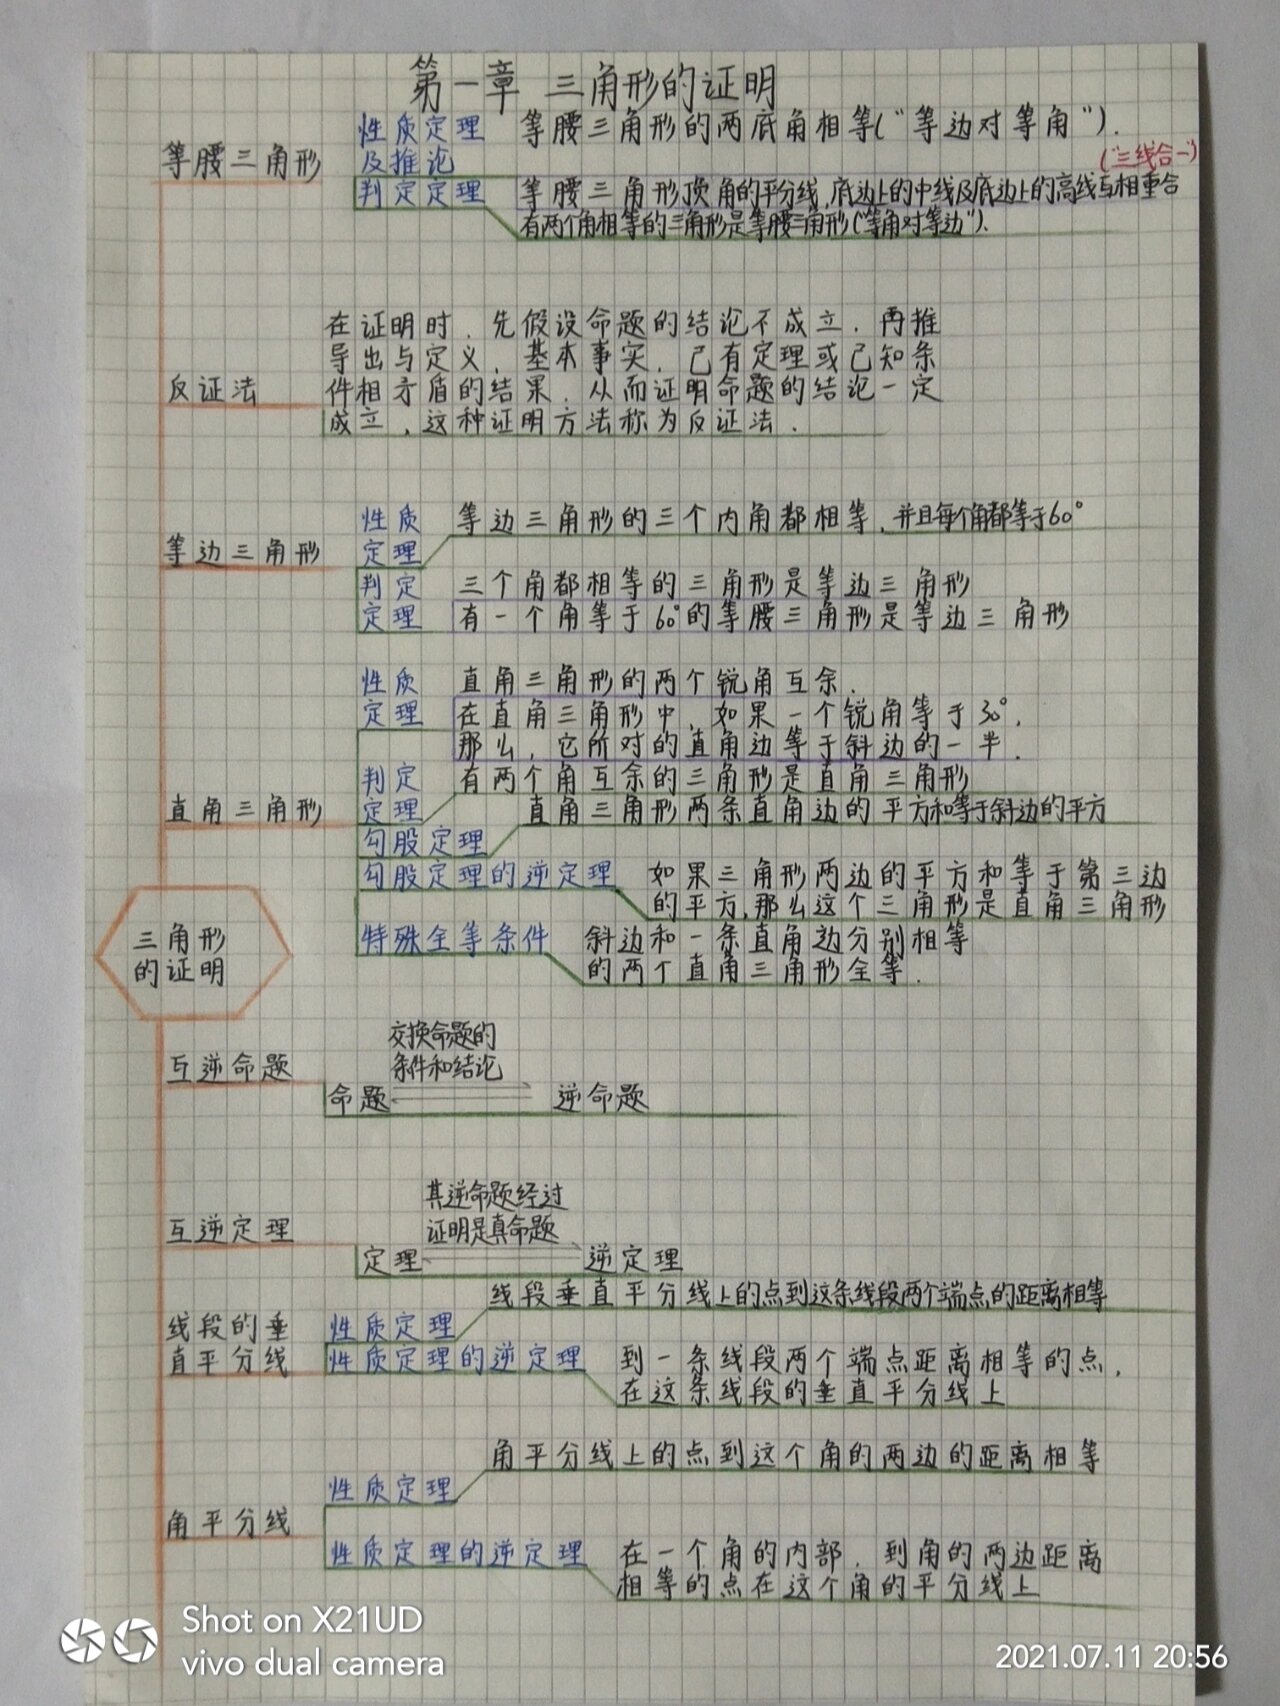 第一章 三角形的证明
等腰三角形
性质定理
及推论
等腰三角形的两底角相等(“等边对等角”).
(“三线合一”)
判定定理
等腰三角形顶角的平分线,底边上的中线及底边上的高线互相重合
有两个角相等的三角形是等腰三角形(“等角对等边”).
反证法
在证明时,先假设命题的结论不成立,再推
导出与定义、基本事实、已有定理或已知条
件相矛盾的结果,从而证明命题的结论一定
成立,这种证明方法称为反证法.
等边三角形
性质
定理
等边三角形的三个内角都相等,并且每个角都等于60°
判定
定理
三个角都相等的三角形是等边三角形
有一个角等于60°的等腰三角形是等边三角形
直角三角形
性质
定理
直角三角形的两个锐角互余.
在直角三角形中,如果一个锐角等于30°,
那么,它所对的直角边等于斜边的一半.
判定
定理
有两个角互余的三角形是直角三角形
勾股定理
直角三角形两条直角边的平方和等于斜边的平方
勾股定理的逆定理
如果三角形两边的平方和等于第三边
的平方,那么这个三角形是直角三角形
特殊全等条件
斜边和一条直角边分别相等
的两个直角三角形全等.
三角形
的证明
互逆命题
交换命题的
条件和结论
命题 逆命题
互逆定理
其逆命题经过
证明是真命题
定理 逆定理
线段的垂
直平分线
性质定理
线段垂直平分线上的点到这条线段两个端点的距离相等
性质定理的逆定理
到一条线段两个端点距离相等的点,
在这条线段的垂直平分线上
角平分线
性质定理
角平分线上的点到这个角的两边的距离相等
性质定理的逆定理
在一个角的内部,到角的两边距离
相等的点在这个角的平分线上
Shot on X21UD
vivo dual camera
2021.07.11 20:56